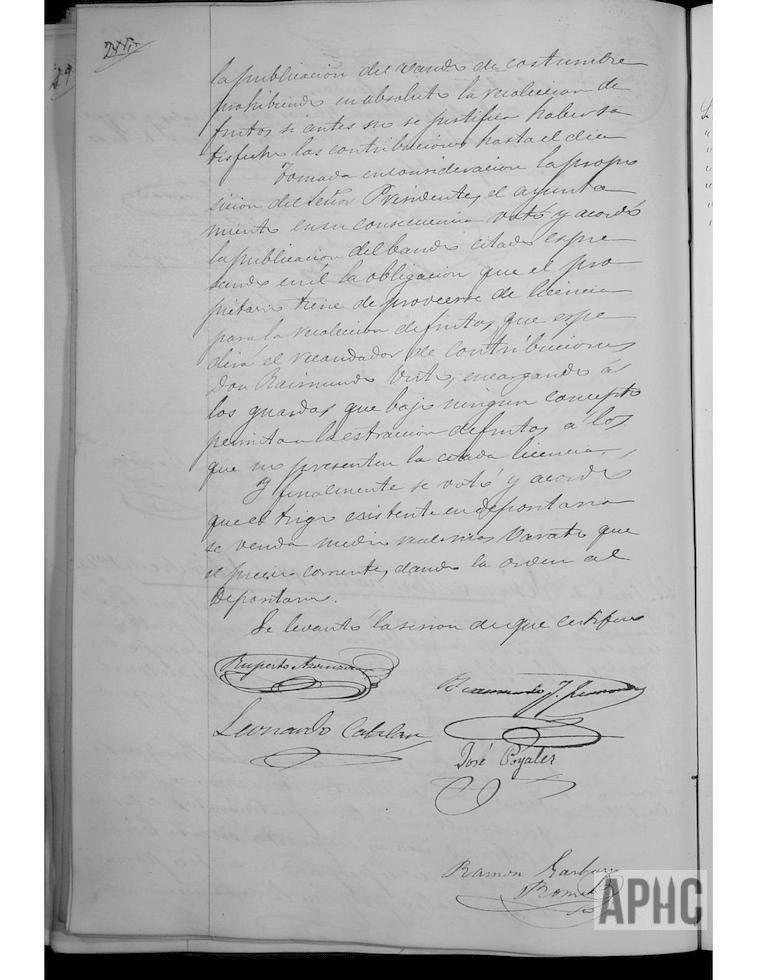 29
la publicacion del vando de costumbre
prohibiendo en absoluto la recoleccion de
frutos si antes no se justifica haber sa
tisfecho las contribuciones hasta el dia
Tomada en consideracion la propo
sicion del Señor Presidente, el ayunta
miento en su consecuencia votó y acordó
la publicacion del bando citado espre
sando en él la obligacion que el pro
pietario tiene de proveerse de licencia
para la recoleccion de frutos, que espe
dirá el recaudador de contribuciones
Don Raimundo encargando á
los guardas que bajo ningun concepto
permitan la estraccion de frutos á los
que no presenten la citada licencia.
Y finalmente se votó y acordó
que el trigo existente en depositaria
se venda medio real mas varato que
el precio corriente, dando la orden al
Depositario.
Se levantó la sesion de que certifico
Ruperto
Leonardo Catalan
José Poyales
Ramon
APHC